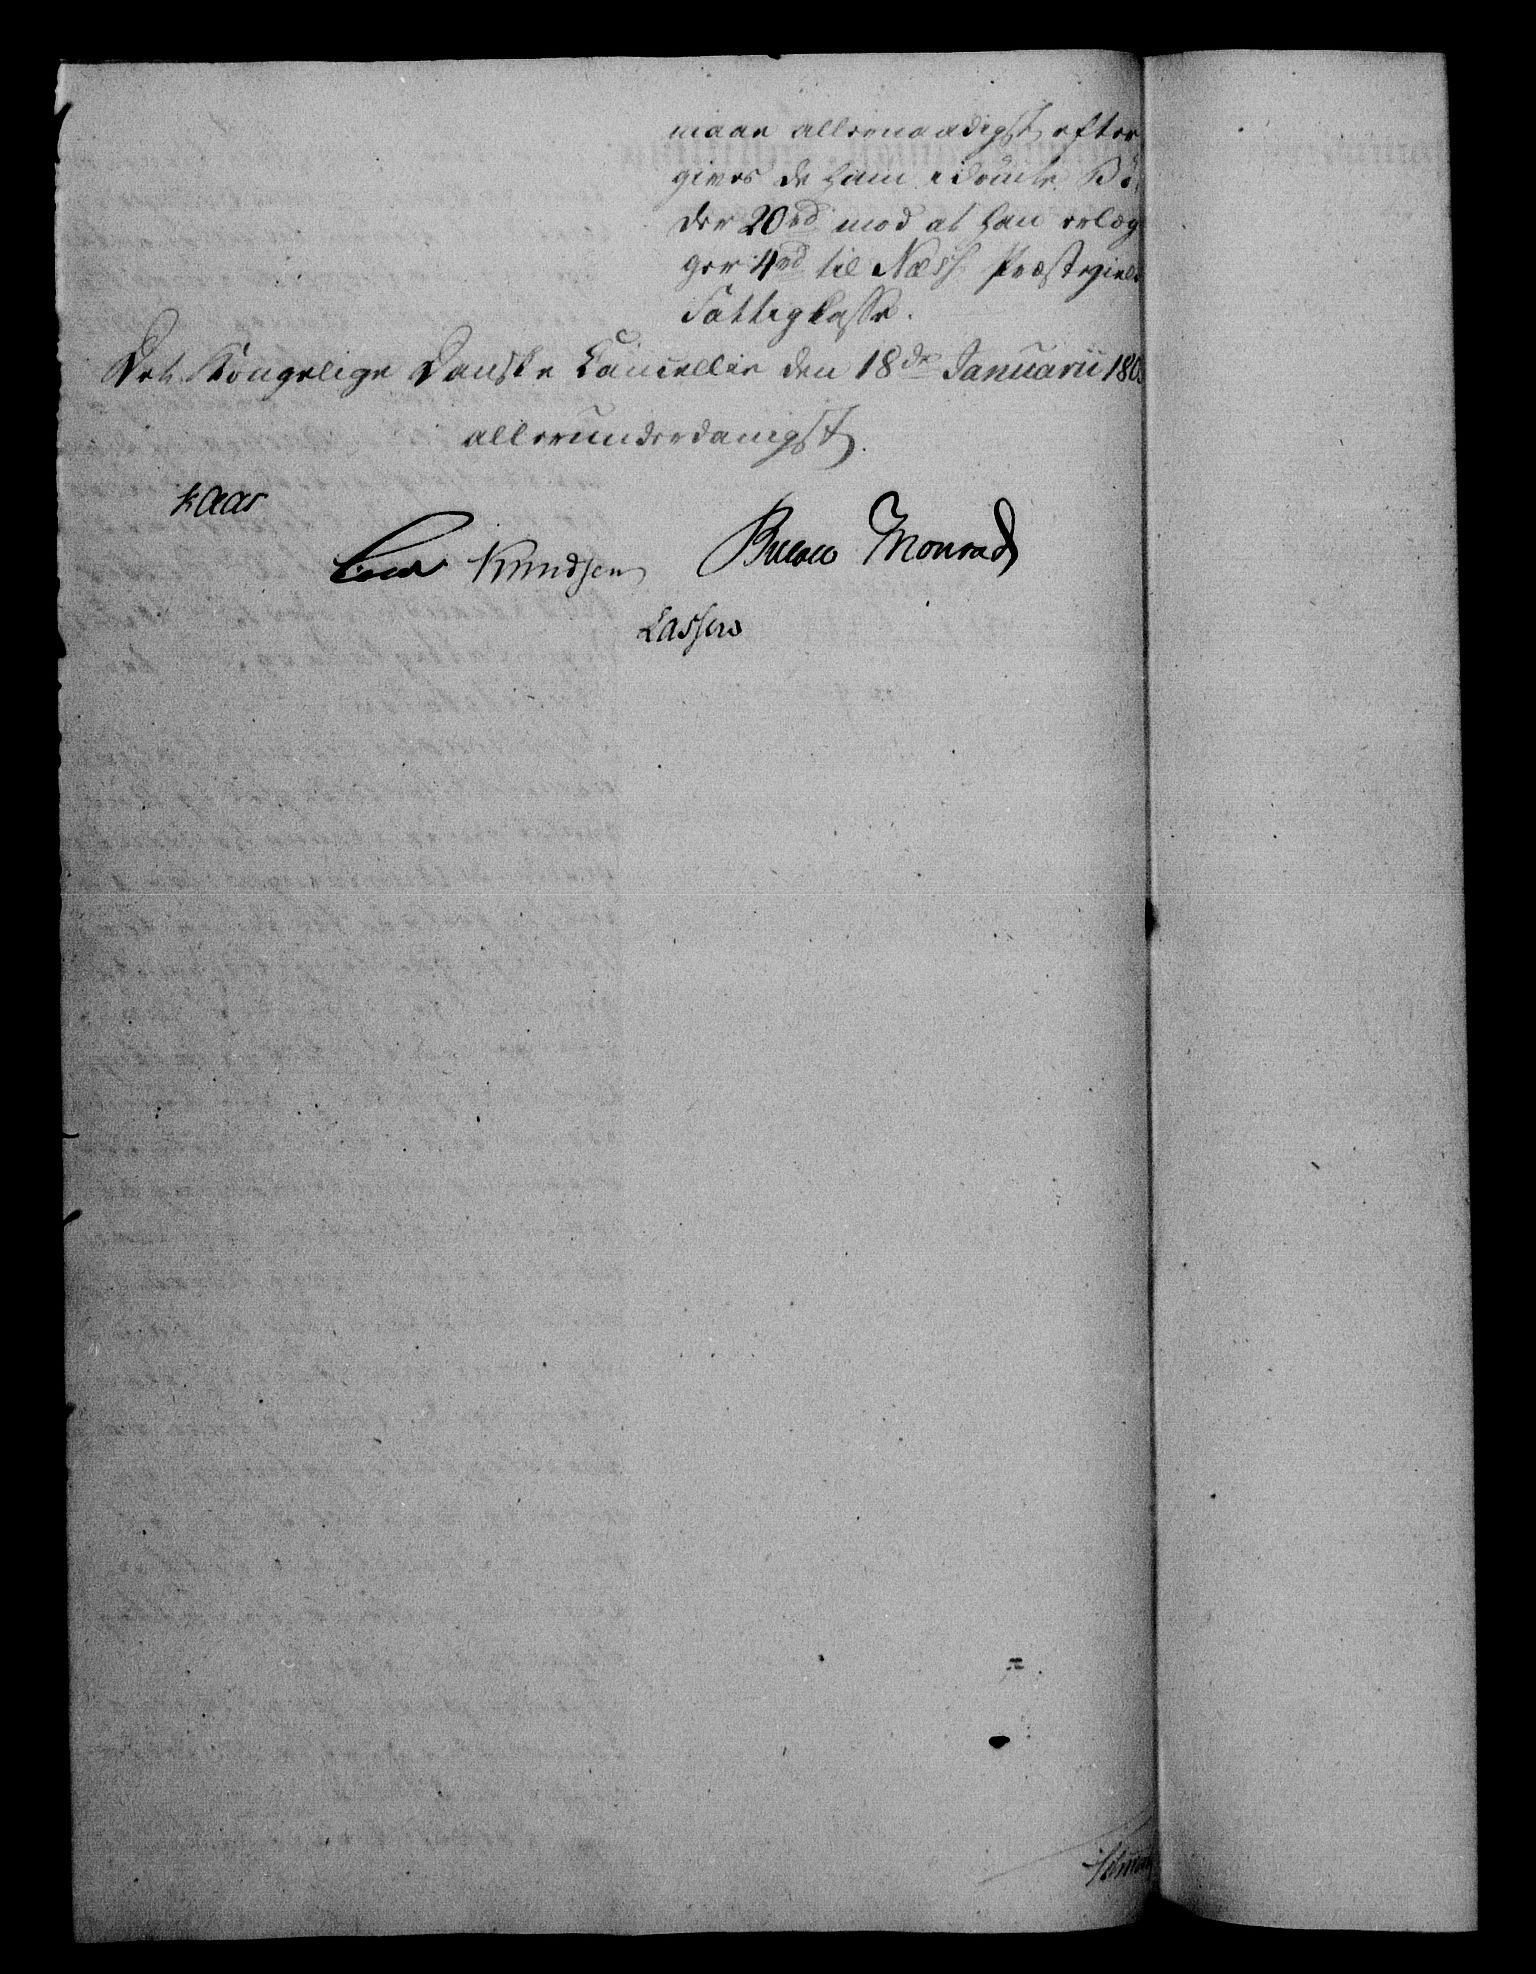 maae allernaadigst efter
gives de ham idömte Bö
der 20 rd mod at han erlæg
ger 4 rd til Næss Præstegield
Fattigkasse.
Det Kongelige Danske Cancellie den 18de Januarii 180
allerunderdanigst
Kaas
Knudsen Bülow Monrad
Lassen